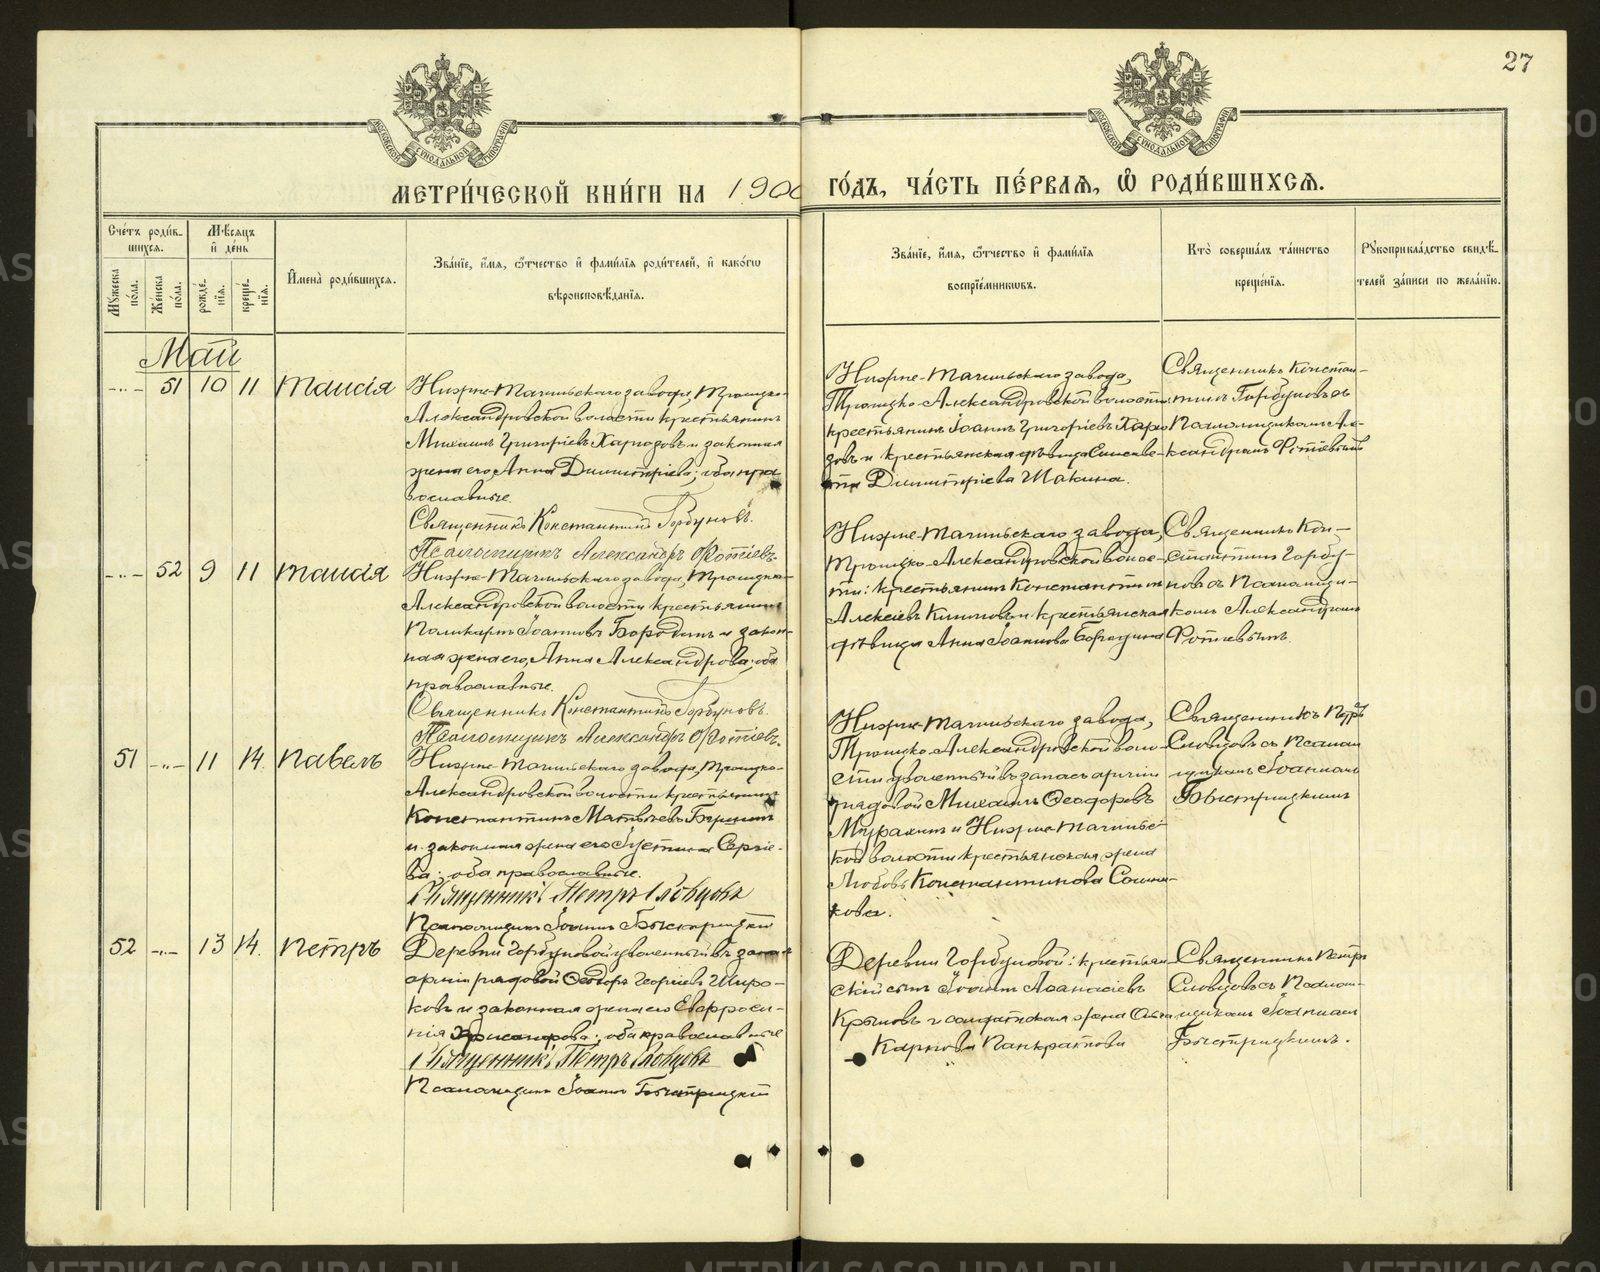 27
МЕТРИ́ЧЕСКОЙ КНИ́ГИ НА 1900 ГО́ДЪ, ЧА́СТЬ ПЕ́РВАѦ, Ѽ РОДИ́ВШИХСѦ.
Сче́тъ роди́в-
шихсѧ.
Мꙋжеска по́ла.
Же́нска по́ла.
Мѣ́сѧцъ
и҆ де́нь
рожде́нїѧ.
креще́нїѧ.
И҆мена̀ роди́вшихсѧ.
Зва́нїе, и҆́мѧ, ѻ҆́тчество и҆ фами́лїѧ роди́телей, и҆ како́гѡ
вѣроисповѣ́данїѧ.
Зва́нїе, и҆́мѧ, ѻ҆́тчество и҆ фами́лїѧ
воспрїе́мникѡвъ.
Кто̀ соверша́лъ та́инство
креще́нїѧ.
Рꙋкоприкла́дство свидѣ́-
телей за́писи по жела́нїю.
Май
-„- 51 10 11 Таисія
Нижне-Тагильскаго завода, Троицко-
Александровской волости крестьянинъ
Михаилъ Григоріевъ и законная
жена его, Анна Димитріева; оба пра
вославные.
Священникъ Константинъ Горбуновъ.
Псаломщикъ Александръ Фотіевъ.
Нижне-Тагильскаго завода,
Троицко-Александровской волости
крестьянинъ Іоаннъ Григоріевъ
зовъ и крестьянская дѣвица Елисаве-
та Димитріева Шакина.
Священникъ Констан-
тинъ Горбуновъ съ
Псаломщикомъ Але-
ксандромъ Фотіевымъ
-„- 52 9 11 Таисія
Нижне-Тагильскаго завода, Троицко-
Александровской волости крестьянинъ
Поликарпъ Іоанновъ Бородинъ и закон-
ная жена его, Анна Александрова; оба
православные.
Священникъ Константинъ Горбуновъ.
Псаломщикъ Александръ Фотіевъ.
Нижне-Тагильскаго завода,
Троицко-Александровской волос-
ти: крестьянинъ Константинъ
Алексіевъ и крестьянская
дѣвица Анна Іоаннова Бородина
Священникъ Кон-
стантинъ Горбу-
новъ съ Псаломщи-
комъ Александромъ
Фотіевымъ.
51 -„- 11 14. Павелъ
Нижне-Тагильскаго завода, Троицко-
Александровской волости крестьянинъ
Константинъ Матвѣевъ
и законная жена его Іустина Сергіе-
ва; оба православные.
Священникъ Петръ Словцовъ
Псаломщикъ Іоаннъ Быстрицкій
Нижне-Тагильскаго завода,
Троицко-Александровской воло-
сти уволенный въ запасъ арміи
рядовой Михаилъ Ѳеодоровъ
и Нижне-Тагильс-
кой волости крестьянская жена
Любовь Константинова
кова.
Священникъ Петръ
Словцовъ съ Псалом
щикомъ Іоанномъ
Быстрицкимъ
52 -„- 13 14. Петръ
Деревни Горбуновой уволенный въ запасъ
арміи рядовой Ѳеодоръ Георгіевъ Широ-
ковъ и законная жена его Евфроси-
нія; оба православные
Священникъ Петръ Словцовъ
Псаломщикъ Іоаннъ Быстрицкій
Деревни Горбуновой: крестьян-
скій сынъ Іоаннъ Аѳанасіевъ
Крыловъ и солдатская жена
Карпова Панкратова
Священникъ Петръ
Словцовъ съ Псалом-
щикомъ Іоанномъ
Быстрицкимъ.
METRIKI.GASO-URAL.RU